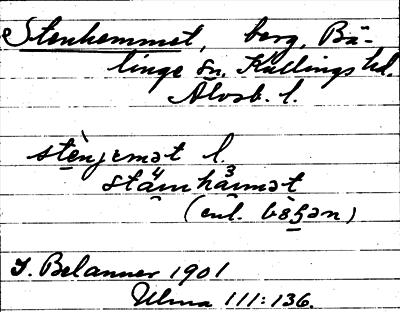 Stenhemmet, berg, Bä-
linge sn. Kullings hd.
Älvsb. l.
stènjemət l.
stä⁴mhä³mət
(enl. bòʒən)
J. Belanner 1901
Ulma 111:136.